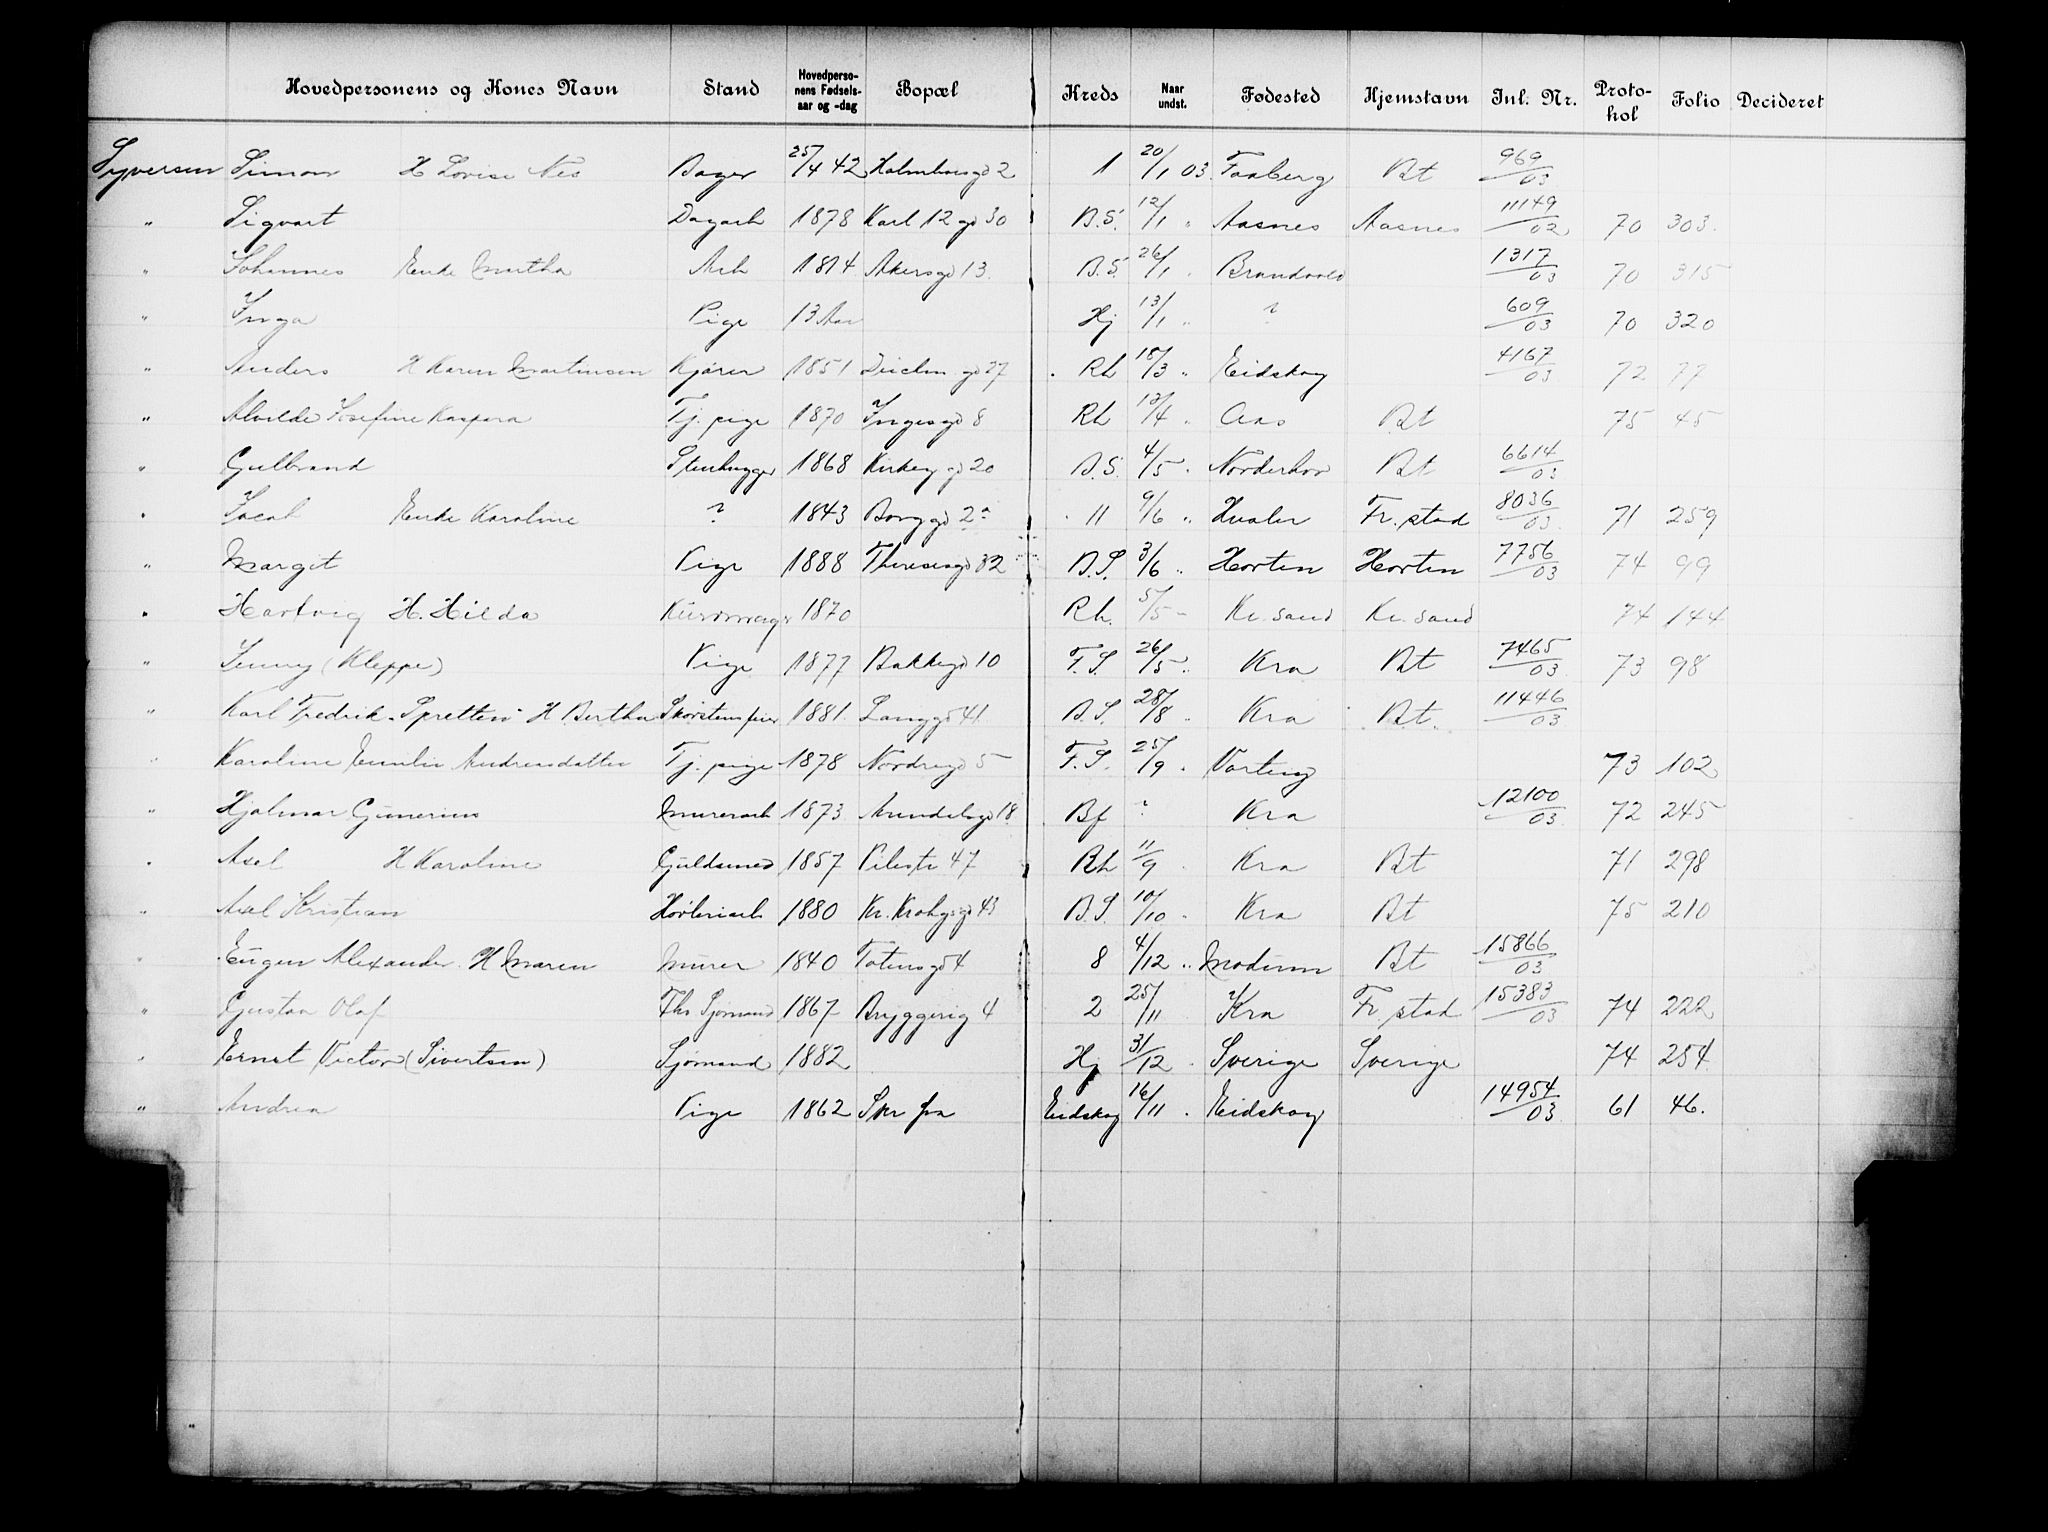 Hovedpersonens og Kones Navn Stand Hovedperso- nens Fødsels- aar og -dag Bopæl Kreds Naar undst. Fødested Hjemstavn Inl. Nr. Proto- kol Folio Decideret
Syversen Simon H Lovise Nes Bager 25/4 42 Holmboesgd 2 1 20/1 03 Faaberg Bt 969/03
" Sigvart Dagarb 1878 Karl 12 gd 30 B.S. 12/1 " Aasnes Aasnes 11149/02 70 303.
" Johannes Enke Martha Arb 1814 Akersgd 13. B.S. 26/1 " Brandvold 1317/03 70 315
" Inga Pige 13 Aar Hj 13/1 " ? 609/03 70 320
" Anders H Karen Martinsen Kjører 1851 Deichm. gd 27 Rh 18/3 " Eidskog 4167/03 72 77
" Alvilde Josefine Kaspara Tj. pige 1870 Ingesgd 8 Rh 12/4 " Aas Bt 75 45
" Gulbrand Stenhugger 1868 Kirkeg gd 20 B.S. 4/5 " Norderhov Bt 6614/03
" Jacob Enke Karoline ? 1843 Borggd 2a 11 9/6 " Hvaler Fr. stad 8036/03 71 259
" Margit Pige 1888 Theresesgd 32 B.S. 3/6 " Horten Horten 7756/03 74 99
" Hartvig H. Hilda 1870 Rh. 5/5 - Kr. sand Kr. sand 74 144
" Jenny (Kleppe) Pige 1877 Bakkegd 10 F.S. 26/5 " Kra Bt 7465/03 73 98
" Karl Fredrik "Spretten" H. Bertha Skorstensfeier 1881. Langgd 41 B.S. 28/8 " Kra Bt. 11446/03
" Karoline Emilie Andreasdatter Tj. pige 1878 Nordregd 5 F.S. 25/9 " Varteig 73 102
" Hjalmar Gunerius Murerarb 1873 Arundelsgd 18 Bf ? Kra 12100/03 72 245
" Axel H Karoline Guldsmed 1857 Pilestr 47 Rh 11/9 Kra Bt 71 298
" Axel Kristian Høvleriarb 1880 Kr. Krohgsgd 43 B.S. 10/10 " Kra Bt 75 210
" Eugen Alexander H Maren Murer 1840 Totensgd 4 8 4/12 " Modum Bt 15866/03
" Gustav Olaf Fhs Sjømand 1867 Bryggerig 4 2 25/11 Kra Fr. stad 15383/03 74 222
" Ernst Victor (Sivertsen) Sjømand 1882 Hj 31/12 " Sverige Sverige 74 254
" Andrea Pige 1862 Skr fra Eidskog 16/11 " Eidskog 14954/03 61 46.